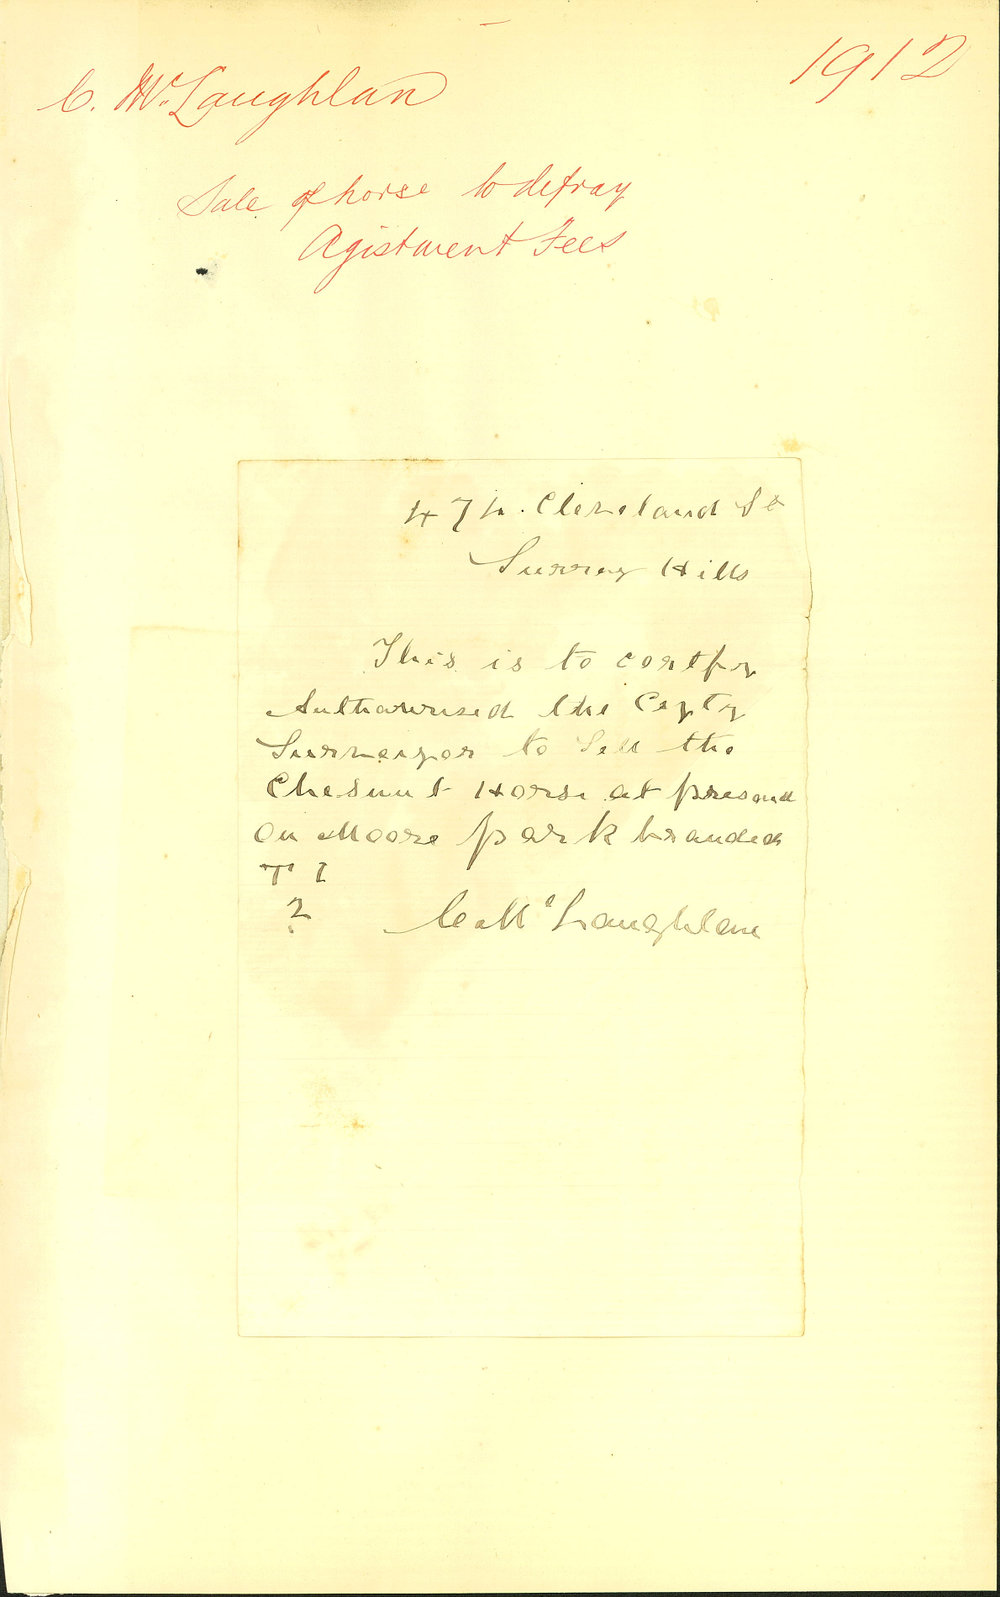 1912
C. McLaughlan
Sale of horse to defray
Agistment Fees
474 Cleveland St
Surrey Hills
This is to
Authorised the City
Surveyor to Sell the
Chesnut Horse at
On Moore park branded
T I
2
C McLaughlan